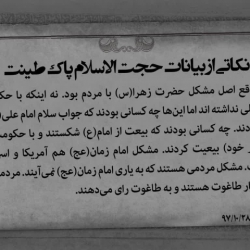 نکاتی از بیانات حجت الاسلام پاک طینت
قع اصل مشکل حضرت زهرا(س) با مردم بود. نه اینکه با حکو
لی نداشته اند اما این‌ها چه کسانی بودند که جواب سلام امام علی(
دند. چه کسانی بودند که بیعت از امام(ع) شکستند و با حکوم
ر خود) بیعیت کردند. مشکل امام زمان(عج) هم آمریکا و اس
ت. مشکل مردمی هستند که به یاری امام زمان(عج) نمی‌آیند. مردمی
ار طاغوت هستند و به طاغوت رای می‌دهند.
۹۷/۱۰/۲۸